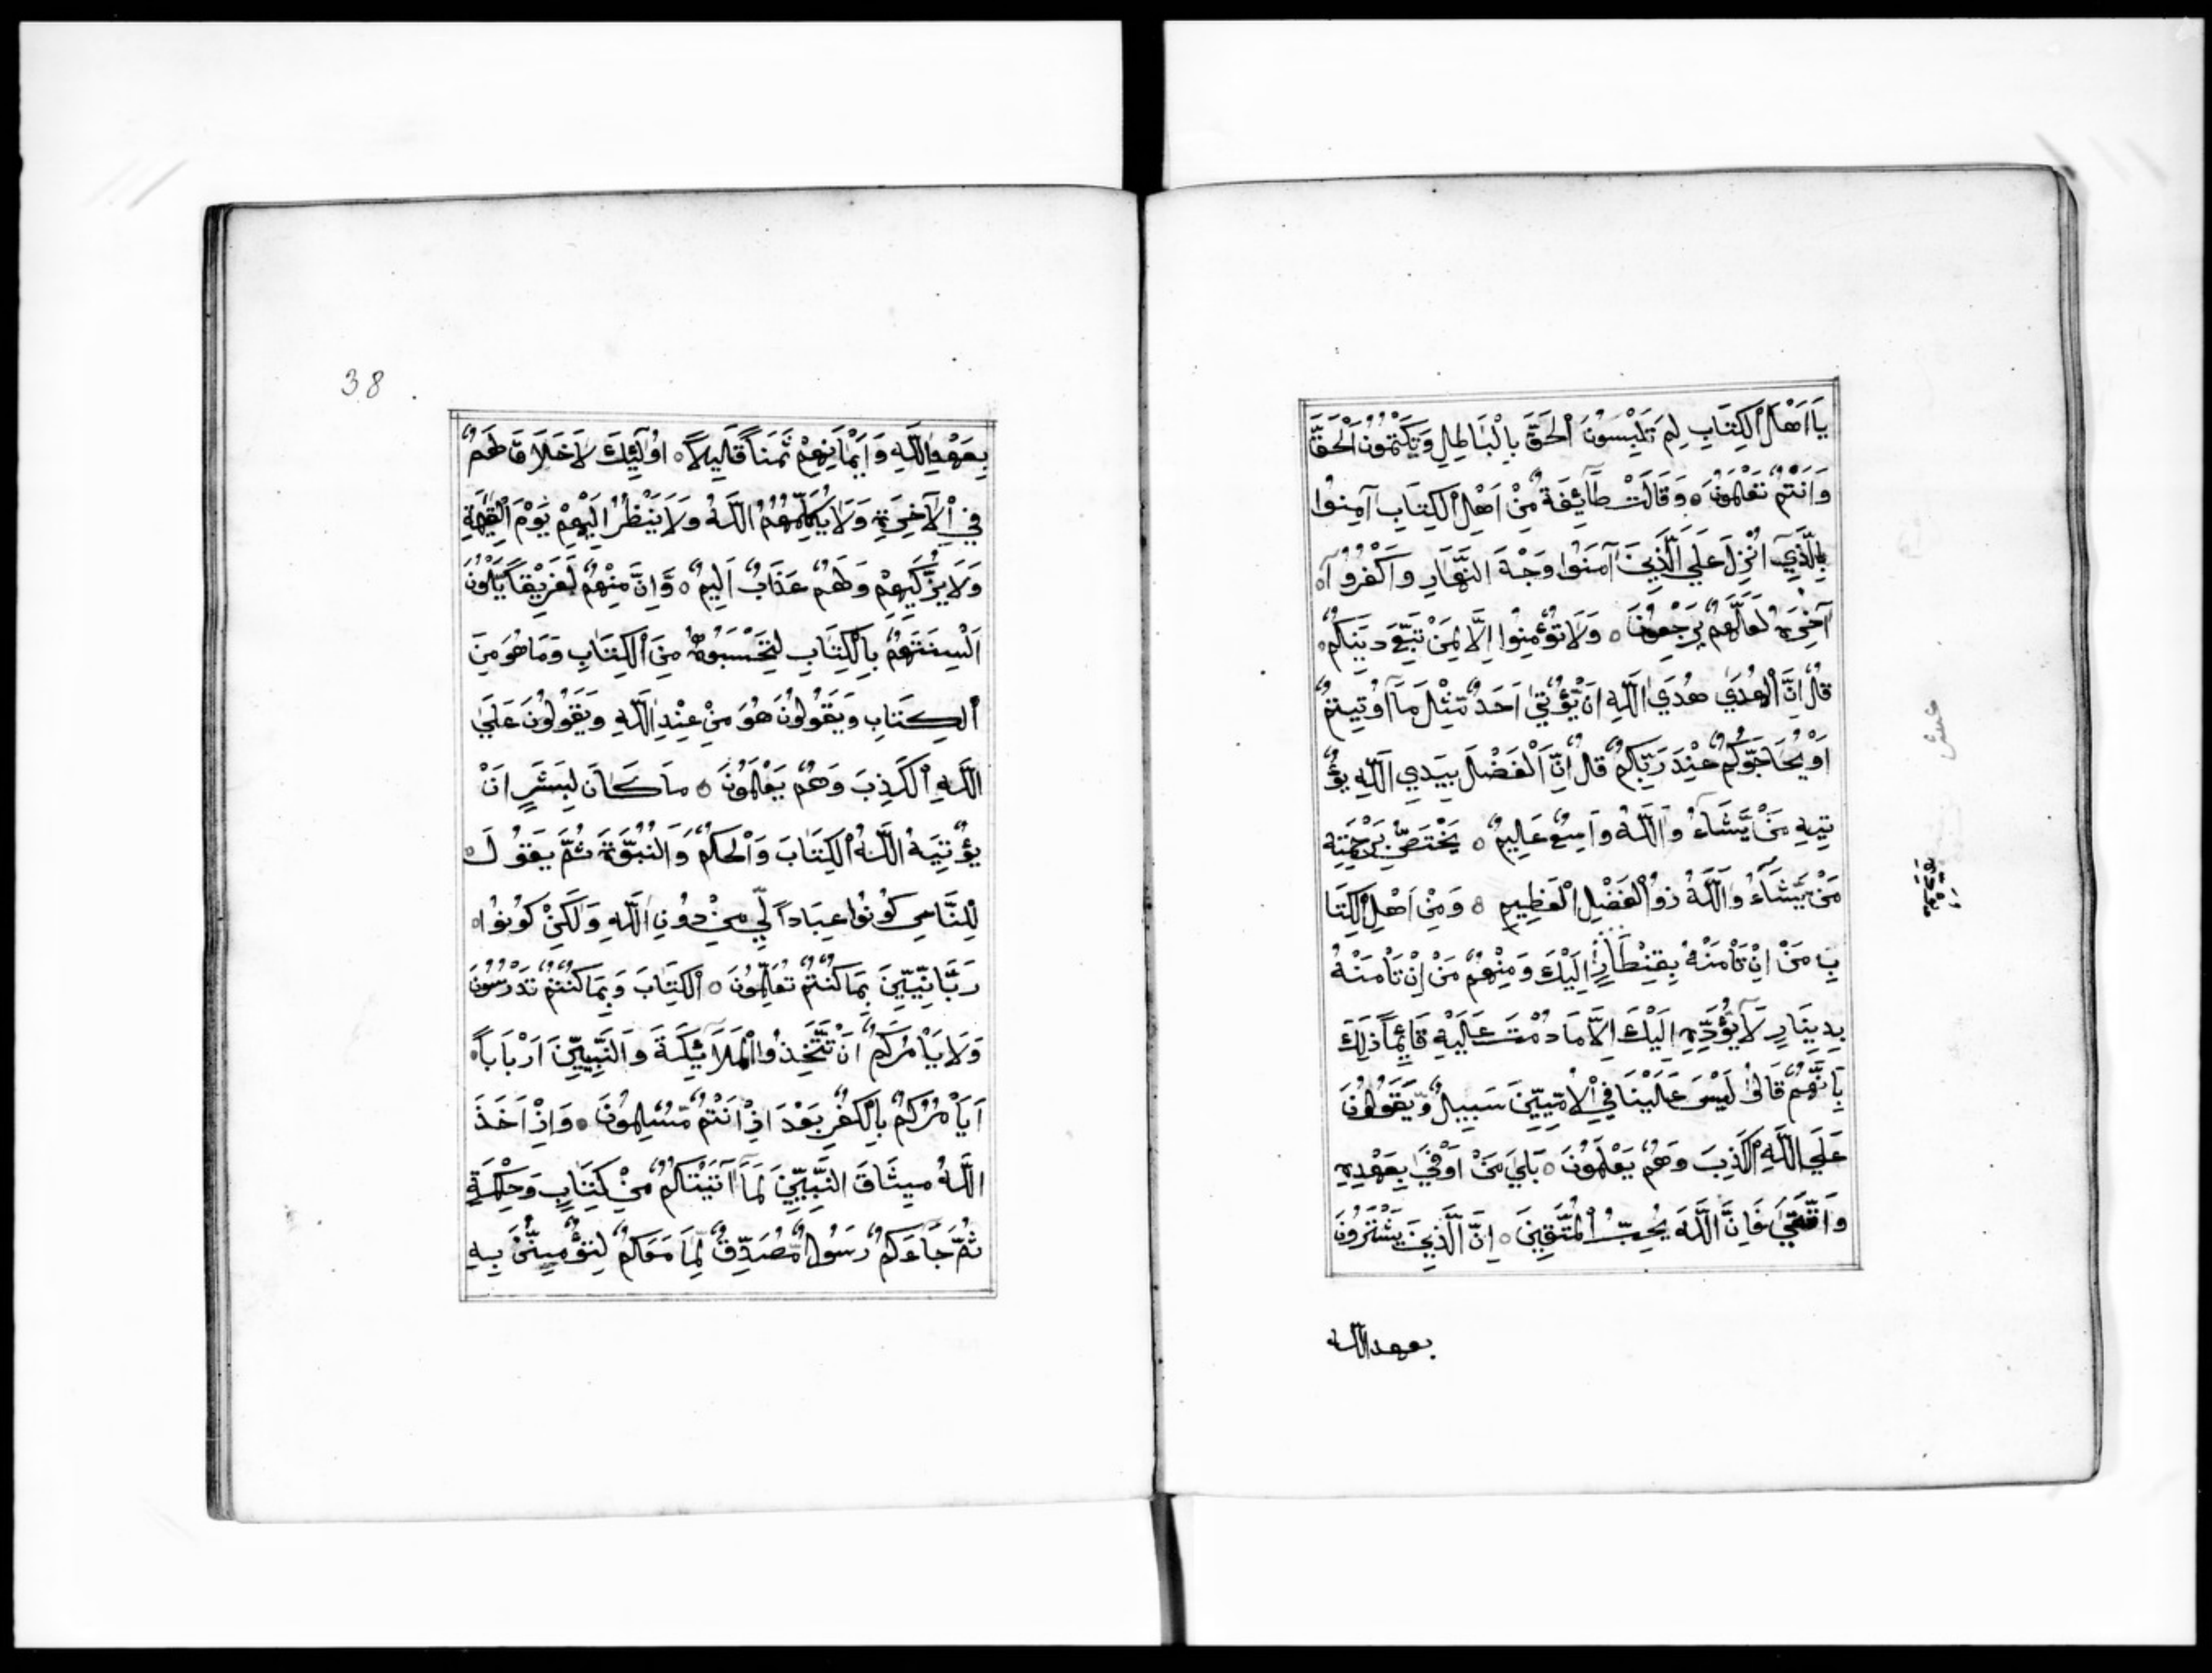 يَا اَهْلَ الْكِتَابِ لِمَ تَلْبِسُونَ الْحَقَّ بِالْبَاطِلِ وَتَكْتُمُونَ الْحَقَّ
وَاَنْتُمْ تَعْلَمُونَ ۝ وَقَالَتْ طَآئِفَةٌ مِّنْ اَهْلِ الْكِتَابِ آمِنُوا
بِالَّذِيٓ اُنْزِلَ عَلَي الَّذِينَ آمَنُوا وَجْهَ النَّهَارِ وَاكْفُرُوٓا
آخِرَهُ لَعَلَّهُمْ يَرْجِعُونَ ۝ وَلَا تُؤْمِنُوا اِلَّا لِمَنْ تَبِعَ دِينَكُمْ
قُلْ اِنَّ الْهُدَيٰ هُدَي اللَّهِ اَنْ يُّؤْتيٰ اَحَدٌ مِّثْلَ مَآ اُوتِيتُمْ
اَوْ يُحَاجُّوكُمْ عِنْدَ رَبِّكُمْ قُلْ اِنَّ الْفَضْلَ بِيَدِي اللَّهِ يُؤْ
تِيهِ مَنْ يَّشَآءُ وَاللَّهُ وَاسِعٌ عَلِيمٌ ۝ يَخْتَصُّ بِرَحْمَتِهِ
مَنْ يَّشَآءُ وَاللَّهُ ذُو الْفَضْلِ الْعَظِيمِ ۝ وَمِنْ اَهْلِ الْكِتَا
بِ مَنْ اِنْ تَأْمَنْهُ بِقِنْطَارٍ اِلَيْكَ وَمِنْهُمْ مَنْ اِنْ تَأْمَنْهُ
بِدِينَارٍ لَّا يُؤَدِّهِ اِلَيْكَ اِلَّا مَا دُمْتَ عَلَيْهِ قَآئِماً ذٰلِكَ
بِاَنَّهُمْ قَالُوا لَيْسَ عَلَيْنَا فِي الْاُمِّيِّينَ سَبِيلٌ وَّيَقُولُونَ
عَلَي اللَّهِ الْكَذِبَ وَهُمْ يَعْلَمُونَ ۝ بَليٰ مَنْ اَوْفيٰ بِعَهْدِهِ
وَاتَّقيٰ فَاِنَّ اللَّهَ يُحِبُّ الْمُتَّقِينَ ۝ اِنَّ الَّذِينَ يَشْتَرُونَ
بعهد الله
38
بِعَهْدِ اللَّهِ وَاَيْمَانِهِمْ ثَمَناً قَلِيلاً ۝ اُولَٓئِكَ لَا خَلَاقَ لَهُمْ
فِي الْآخِرَةِ وَلَا يُكَلِّمُهُمُ اللَّهُ وَلَا يَنْظُرُ اِلَيْهِمْ يَوْمَ الْقِيٰمَةِ
وَلَا يُزَكِّيهِمْ وَلَهُمْ عَذَابٌ اَلِيمٌ ۝ وَّاِنَّ مِنْهُمْ لَفَرِيْقاً يَّلْوُنَ
اَلْسِنَتَهُمْ بِالْكِتَابِ لِتَحْسَبُوهُ مِنَ الْكِتَابِ وَمَا هُوَ مِنَ
الْكِتَابِ وَيَقُولُونَ هُوَ مِنْ عِنْدِ اللَّهِ وَيَقُولُونَ عَلَيٰ
اللَّهِ الْكَذِبَ وَهُمْ يَعْلَمُونَ ۝ مَا كَانَ لِبَشَرٍ اَنْ
يُؤْتِيَهُ اللَّهُ الْكِتَابَ وَالْحُكْمَ وَالنُّبُوَّةَ ثُمَّ يَقُولَ
لِلنَّاسِ كُونُوا عِبَاداً لِّي مِنْ دُونِ اللَّهِ وَلٰكِنْ كُونُوا
رَبَّانِيِّينَ بِمَا كُنْتُمْ تُعَلِّمُونَ ۝ الْكِتَابَ وَبِمَا كُنْتُمْ تَدْرُسُونَ
وَلَا يَأْمُرَكُمْ اَنْ تَتَّخِذُوا الْمَلَآئِكَةَ وَالنَّبِيِّينَ اَرْبَاباً
اَيَأْمُرُكُمْ بِالْكُفْرِ بَعْدَ اِذْ اَنْتُمْ مُّسْلِمُونَ ۝ وَاِذْ اَخَذَ
اللَّهُ مِيثَاقَ النَّبِيِّينَ لَمَآ آتَيْتُكُمْ مِنْ كِتَابٍ وَحِكْمَةٍ
ثُمَّ جَآءَكُمْ رَسُولٌ مُّصَدِّقٌ لِّمَا مَعَكُمْ لَتُؤْمِنُنَّ بِهِ